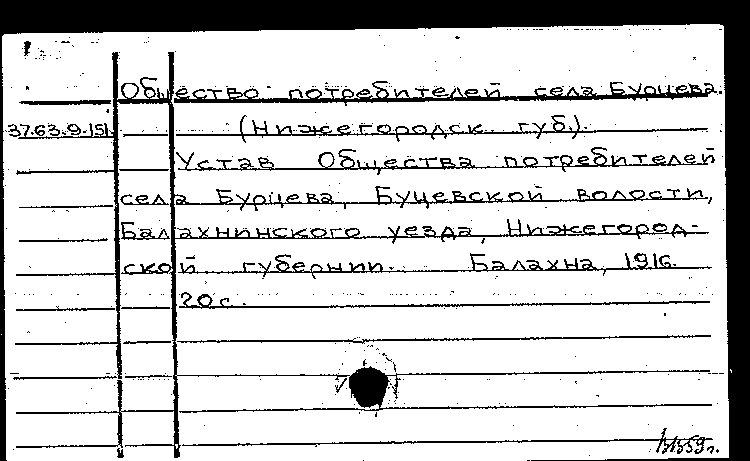 Общество потребителей села Бурцева.
37.63.9.151. (Нижегородск. губ.).
Устав Общества потребителей
села Бурцева, Буцевской волости,
Балахнинского уезда, Нижегород-
ской губернии. Балахна, 1916.
20 с.